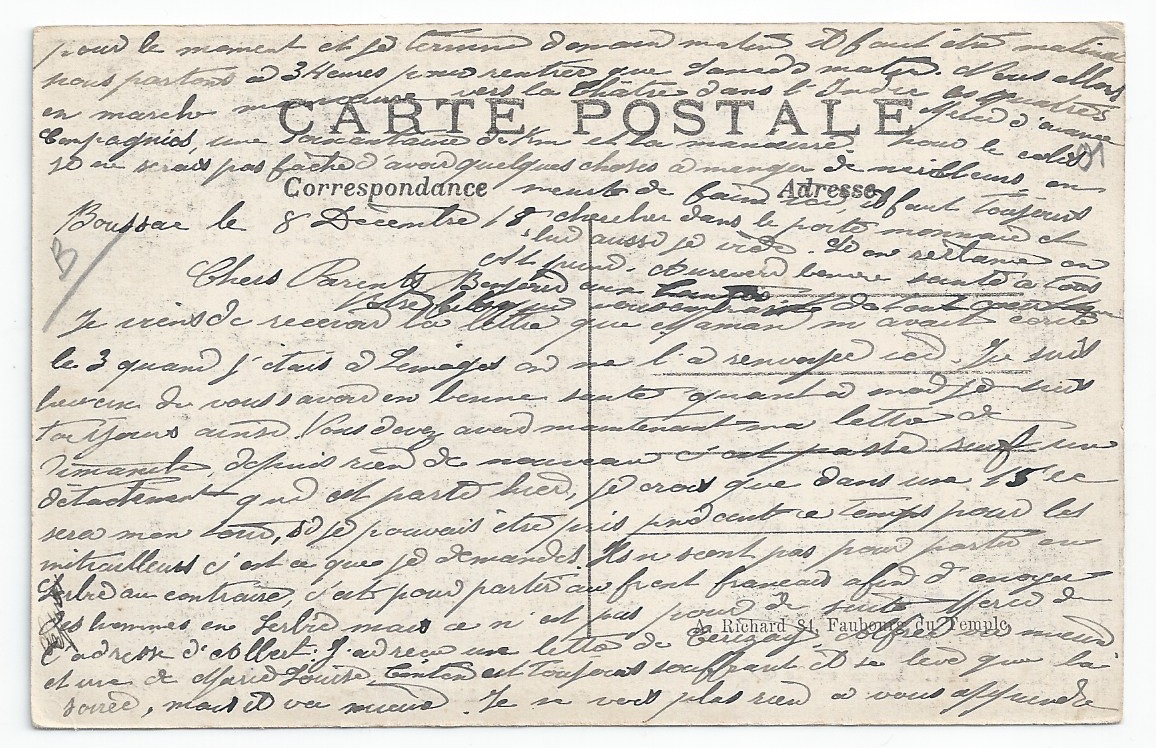 pour le moment et je termine demain matin il faut être matinal
nous partons à 3 Heures pour rentrer que Samedi matin. Nous allons
en marche manœuvre vers la Châtre dans l'Indre les quatres
Compagnies, une soixantaine de Km et la manœuvre. Merci d'avance
pour le colis
je ne serais pas faché d'avoir quelques choses à manger de meilleurs, on
CARTE POSTALE
Correspondance
Adresse
meurt de faim ici, il faut toujours
chercher dans le porte monnaie et
lui aussi se vide. Je en
au revoir bonne santé à tous
Boussac le 8 Décembre 15
Chers Parents
Votre fils qui vous embrasse de tout cœur
Je viens de recevoir la lettre que Maman m'avait écrite
le 3 quand j'étais à Limoges on me l'a renvoyée ici. Je suis
heureux de vous savoir en bonne santé quant à moi je suis
toujours ainsi. Vous devez avoir maintenant ma lettre de
Dimanche, depuis rien de nouveau c'est passé sauf un
détachement qui est parti hier, je crois que dans un 15e
sera mon tour, si je pouvais être pris pendant ce temps pour les
mitrailleurs c'est ce que je demande. Ils n sont pas pour partir en
Serbie au contraire, c'est pour partir au front français afin d'envoyer
des hommes en Serbie mais ce n'est pas pour de suite. Merci de
A. Richard 84, Faubourg du Temple
l'adresse d'Albert. J'ai reçu une lettre de Cerizay, va mieux
et une de Marie Louise, Tonton est toujours souffrant il se lève que la
soirée, mais il va mieux. Je ne vois plus rien à vous apprendre